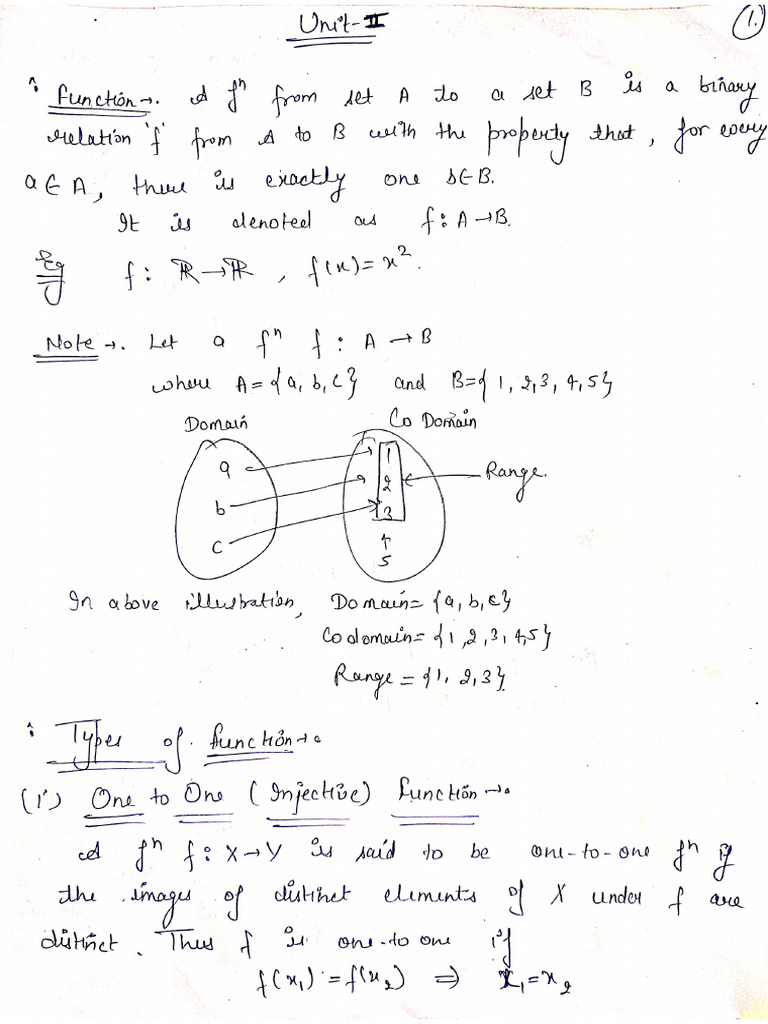 Unit-II
1.
Function →. A fⁿ from set A to a set B is a binary
relation 'f' from A to B with the property that, for every
a ∈ A, there is exactly one b ∈ B.
It is denoted as f : A → B.
Eg f : ℝ → ℝ , f(x) = x².
Note →. Let a fⁿ f : A → B
where A = {a, b, c} and B = {1, 2, 3, 4, 5}
Domain Co Domain
a 1
b 2 Range.
c 3
4
5
In above illustration, Domain = {a, b, c}
Codomain = {1, 2, 3, 4, 5}
Range = {1, 2, 3}.
Types of Function →.
(1) One to One (Injective) Function →.
A fⁿ f : X → Y is said to be one-to-one fⁿ if
the images of distinct elements of X under f are
distinct. Thus f is one-to one if
f(x₁) = f(x₂) ⇒ x₁ = x₂